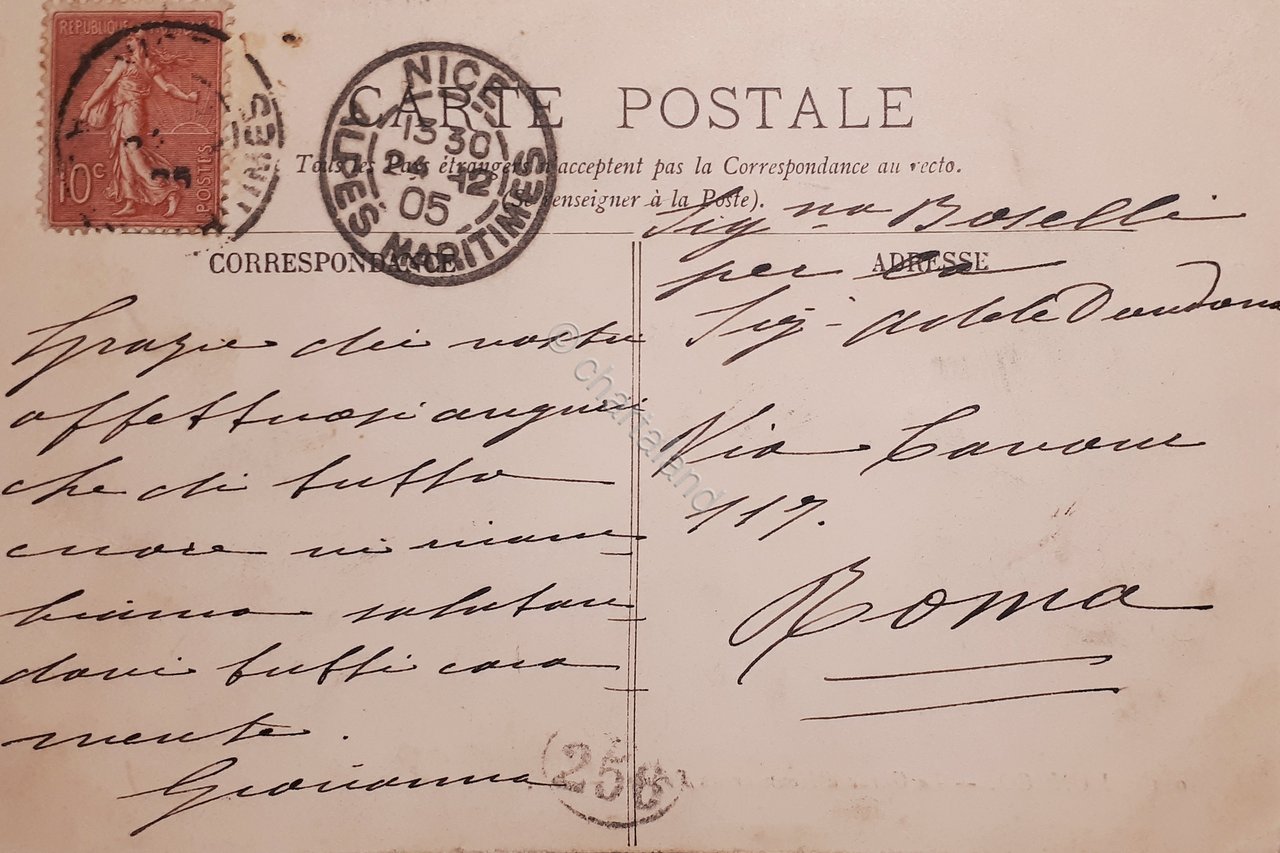 REPUBLIQUE FRANÇAISE
10c
POSTES
NICE
13 30
24 -12
05
ALPES MARITIMES
CARTE POSTALE
Tous les Pays étrangers n'acceptent pas la Correspondance au recto.
(Se renseigner à la Poste).
CORRESPONDANCE
Grazie dei vostri
affettuosi auguri
che di tutto
cuore vi ricam
biamo salutan
dovi tutti cara
mente.
Giovanna
ADRESSE
Signa Boselli
per
Sig- Adele
Via Cavour
117.
Roma
256
© chartaland